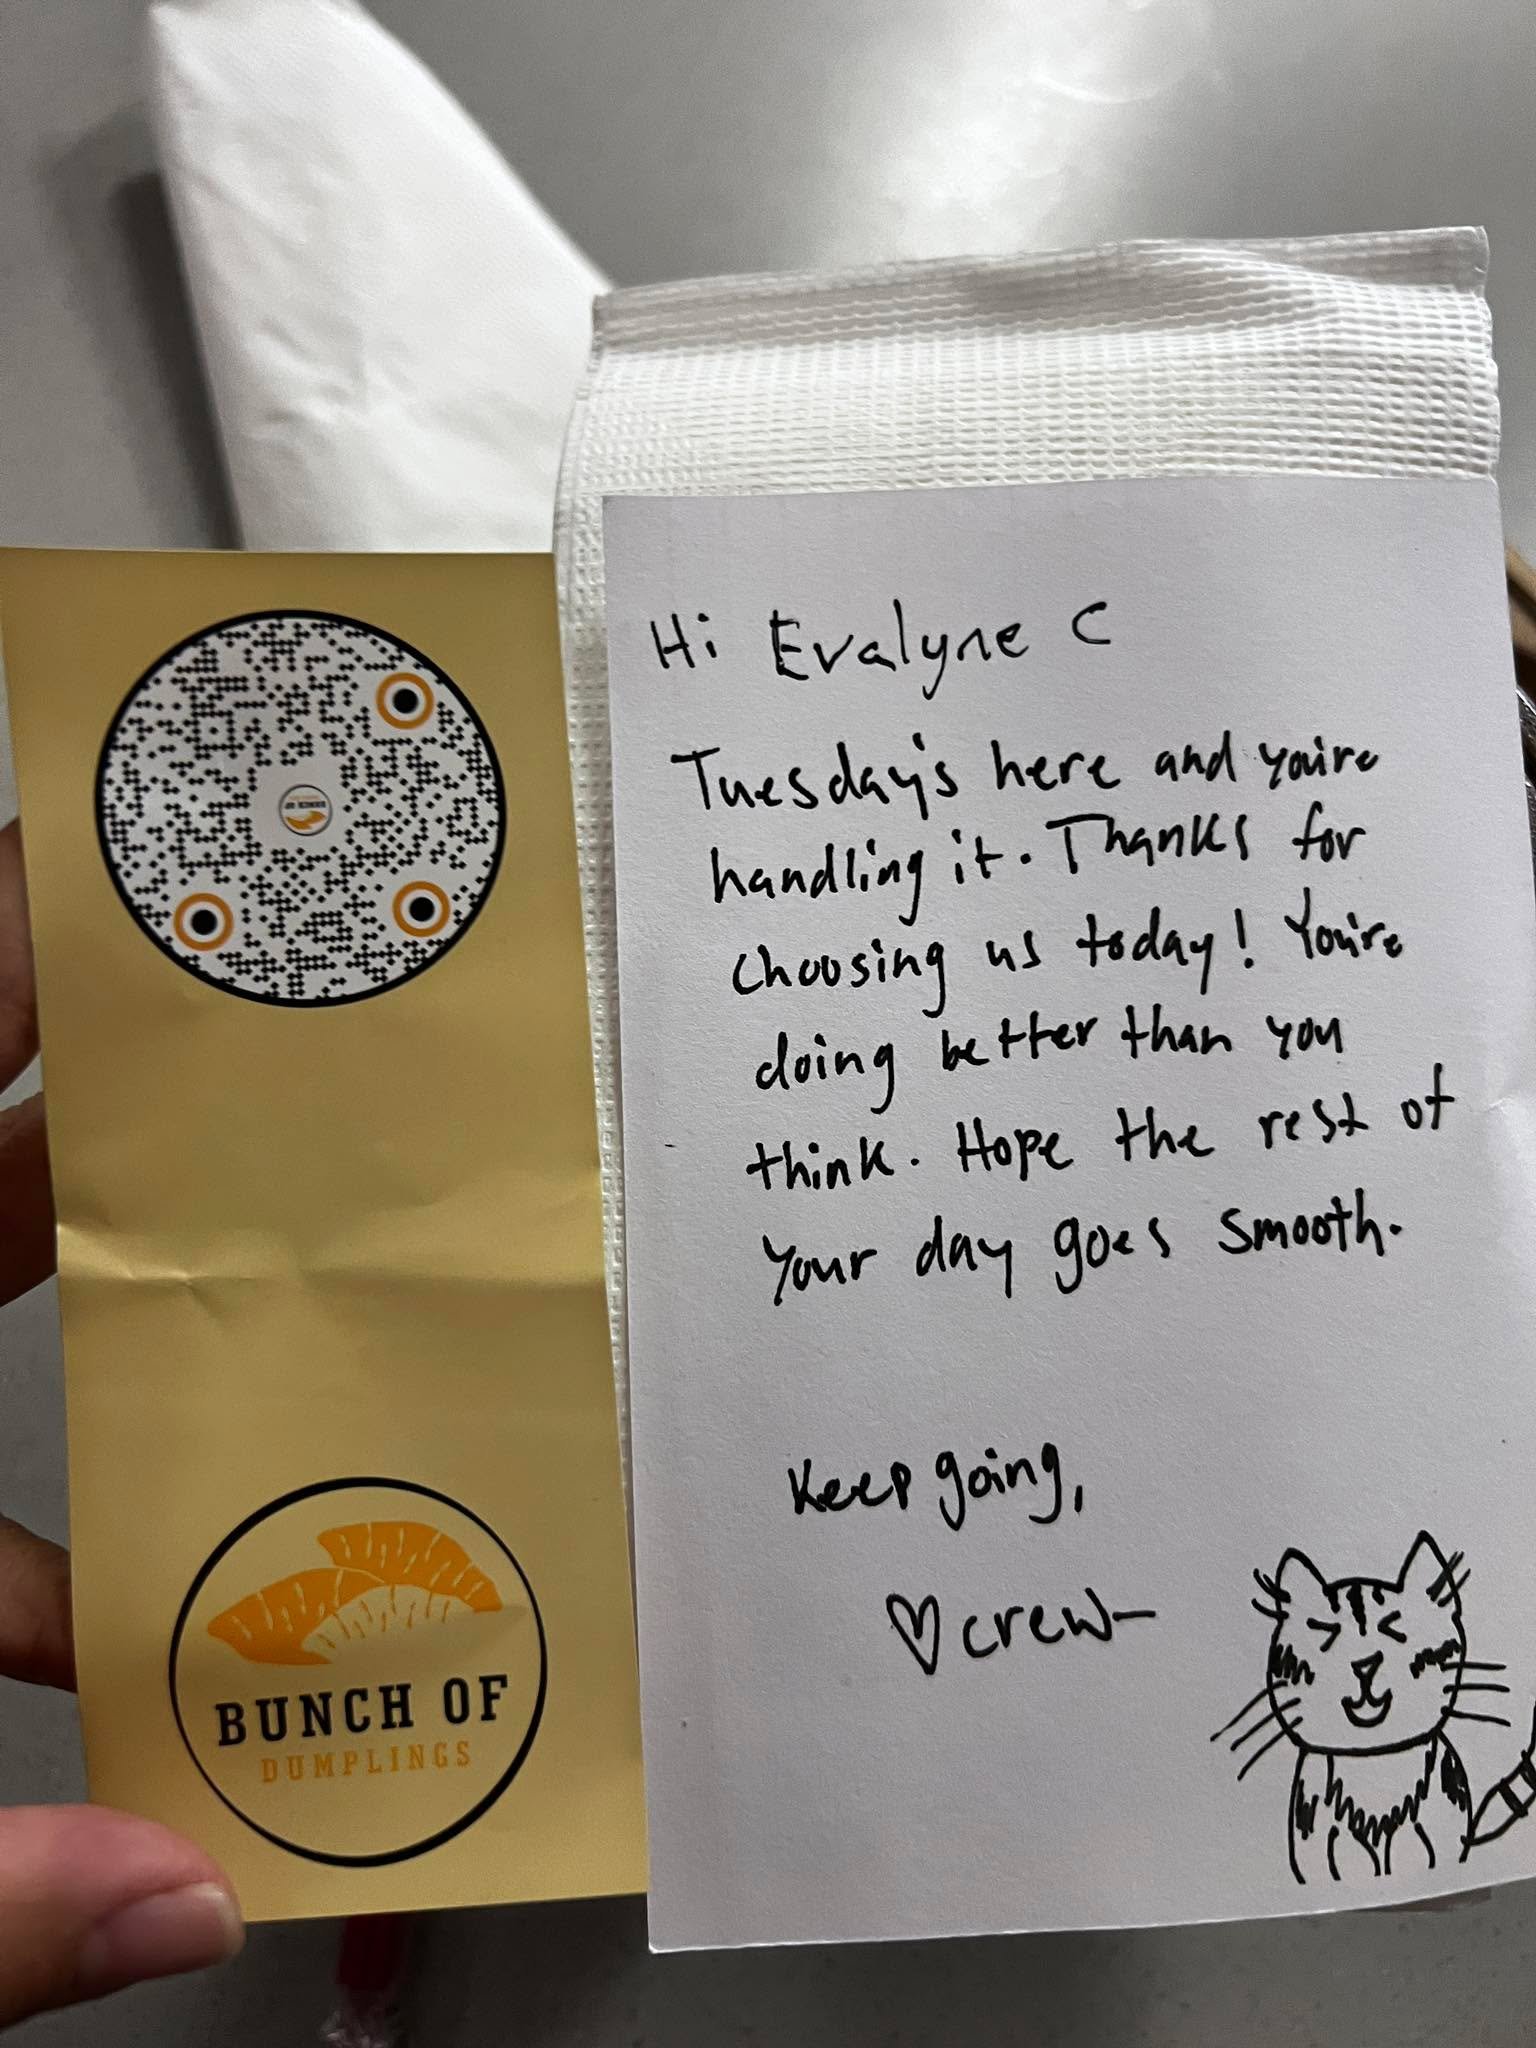 BUNCH OF
BUNCH OF
DUMPLINGS
Hi Evalyne C
Tuesday's here and you're
handling it. Thanks for
choosing us today! You're
doing better than you
think. Hope the rest of
your day goes smooth.
Keep going,
♡crew–